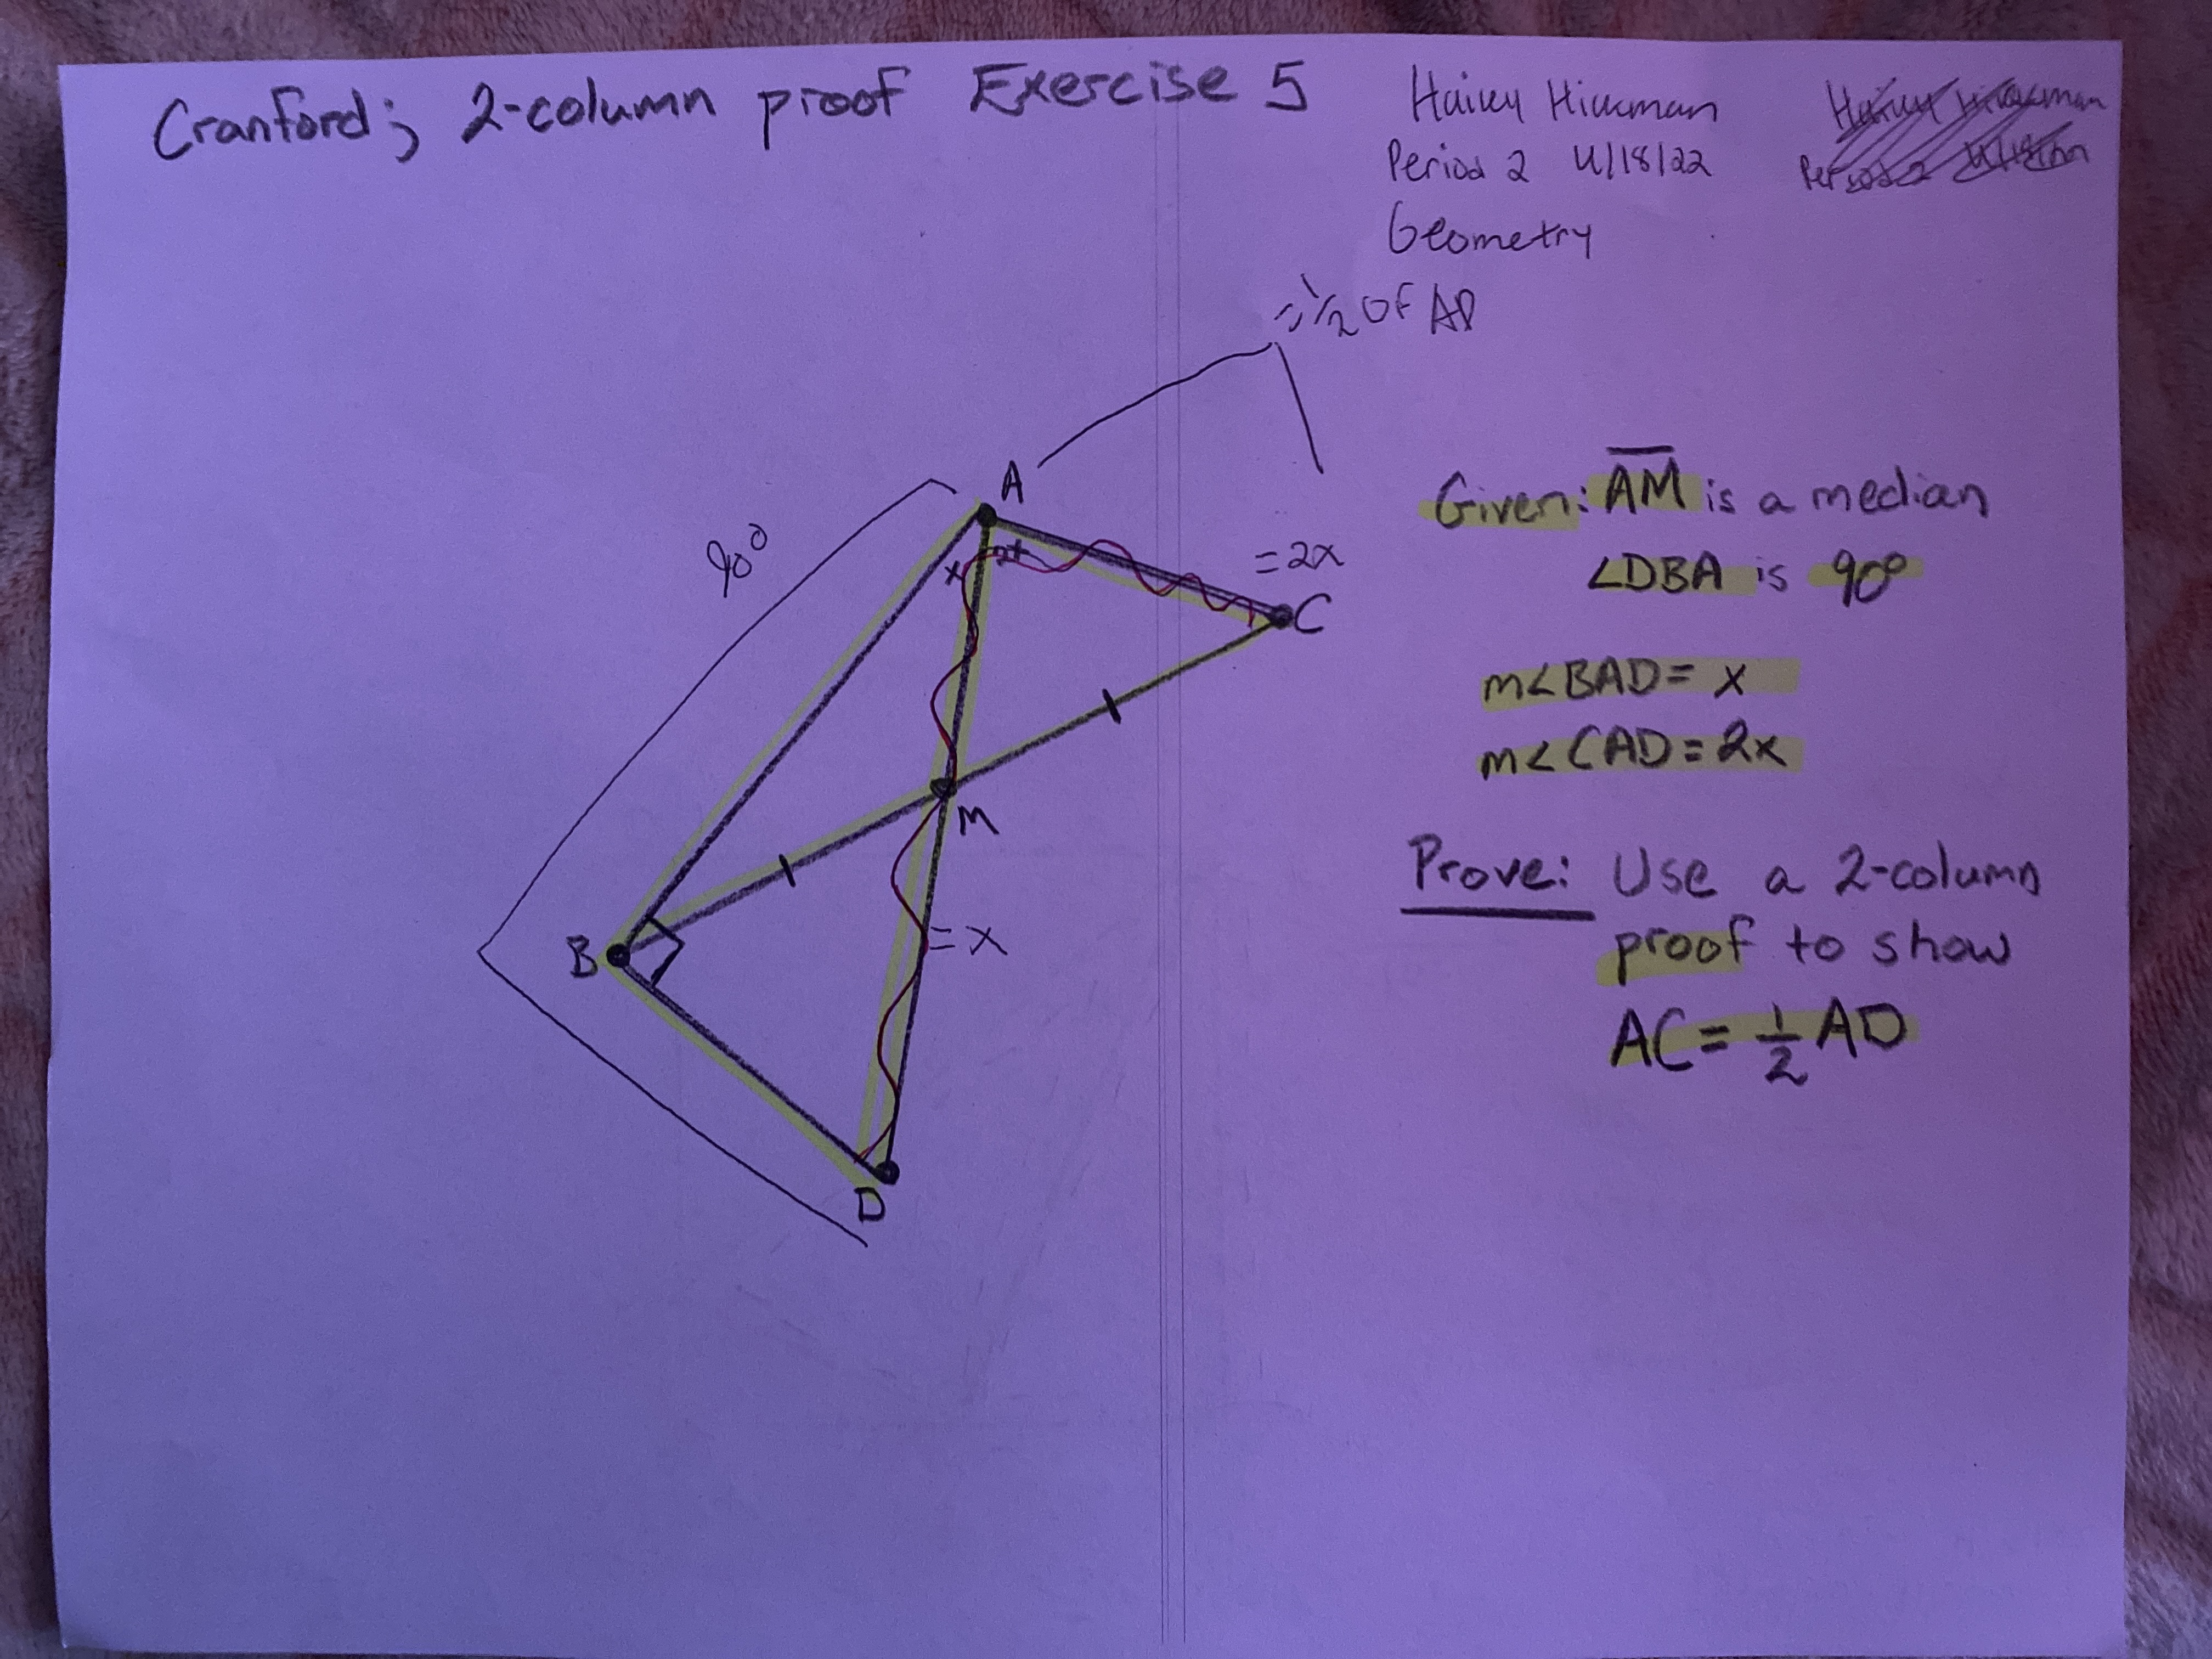 Cranford; 2-column proof Exercise 5
Hailey Hickman
Period 2 4/18/22
Geometry
= 1/2 OF AD
A
90°
x
2x
= 2x
C
M
B
= x
D
Given: AM is a median
∠DBA is 90°
m∠BAD = x
m∠CAD = 2x
Prove: Use a 2-column
proof to show
AC = 1/2 AD